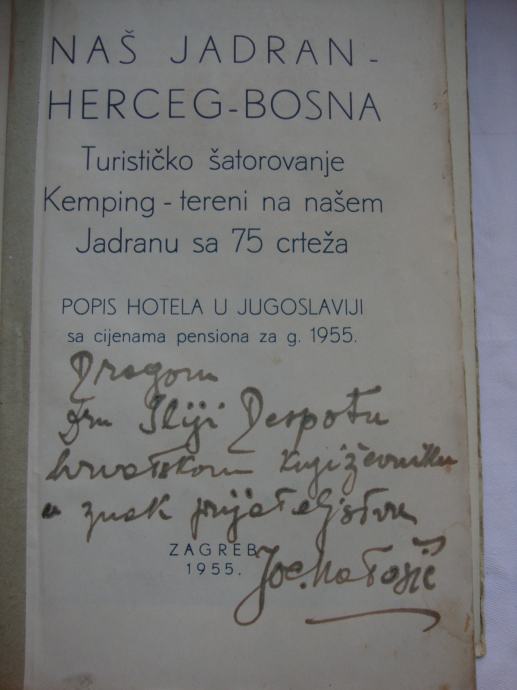 NAŠ JADRAN -
HERCEG-BOSNA
Turističko šatorovanje
Kemping - tereni na našem
Jadranu sa 75 crteža
POPIS HOTELA U JUGOSLAVIJI
sa cijenama pensiona za g. 1955.
Dragom
Dru Iliji Despotu
hrvatskom književniku
u znak prijateljstva
ZAGREB
1955.
Joe Matošić